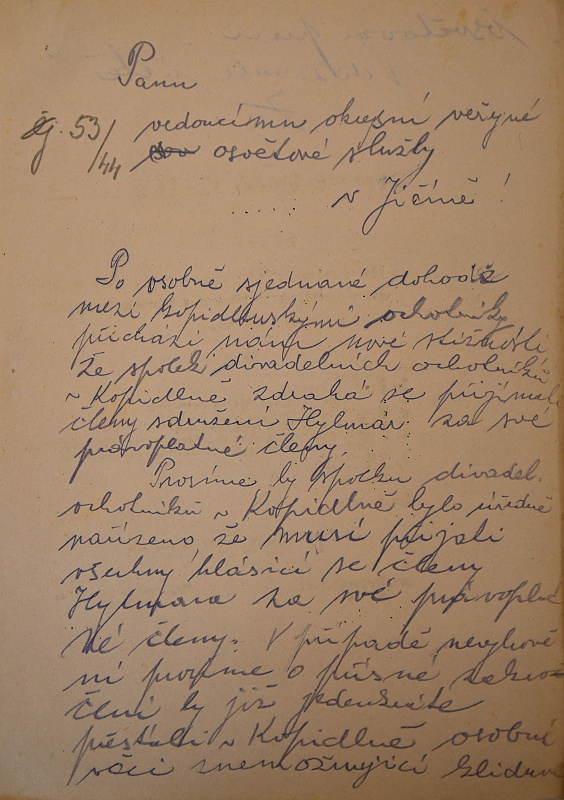 Panu
čj. 53/44
vedoucímu okresní veřejné
osvětové služby
v Jičíně!
Po osobně sjednané dohodě
mezi kopidlenskými ochotníky
přichází nám nové stížnosti
že spolek divadelních ochotníků
v Kopidlně zdrahá se přijímati
členy sdružení Hylmar za své
právoplatné členy.
Prosíme by spolku divadel.
ochotníků v Kopidlně bylo úředně
nařízeno že musí přijati
všechny hlásící se členy
Hylmara za své právoplat
né členy. V případě nevyhově
ní prosíme o přísné zakro-
čení by již jedenkráte
přestali v Kopidlně osobní
věci znemožnující